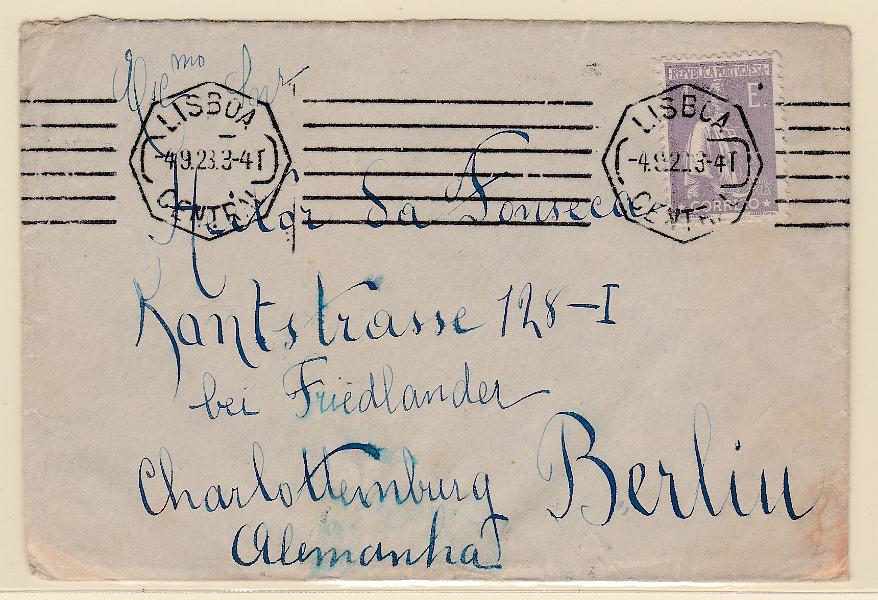 Exmo Snr
REPUBLICA PORTUGUESA
E.
CORREIO
LISBOA
-4.9.23.3-4T
CENTRAL
LISBOA
-4.9.23.3-4T
CENTRAL
Heitor da Fonseca
Kantstrasse 128-I
bei Friedlander
Charlottemburg Berlin
Alemanha